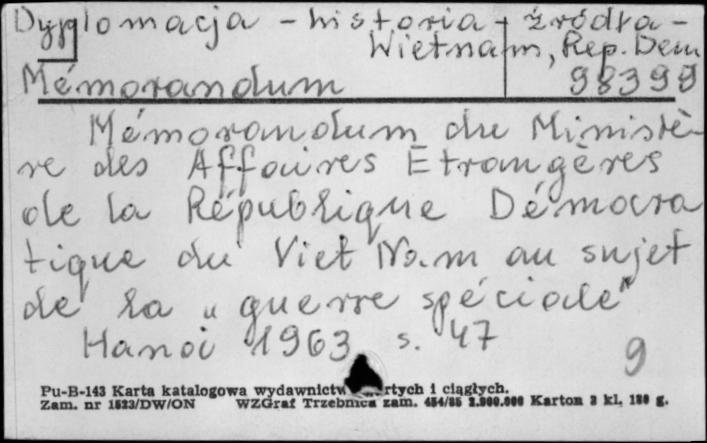 Dyplomacja - historia - źródła -
Wietnam, Rep. Dem
Mémorandum 98399
Mémorandum du Ministè-
re des Affaires Etrangères
de la République Démocra
tique du Viet Nam au sujet
de la „guerre spéciale"
Hanoi 1963 s. 47
9
Pu-B-143 Karta katalogowa wydawnictw zwartych i ciągłych.
Zam. nr 1523/DW/ON WZGraf Trzebnica zam. 454/85 2.000.000 Karton 3 kl. 180 g.